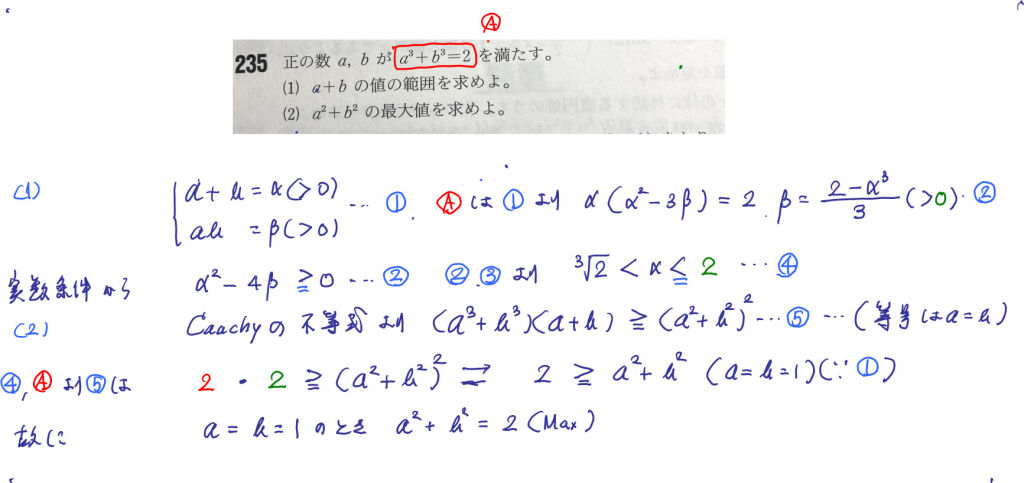 Ⓐ
235 正の数 a, b が a³+b³=2 を満たす。
(1) a+b の値の範囲を求めよ。
(2) a²+b² の最大値を求めよ。
(1) a+b=α(>0)
ab=β(>0) … ① . Ⓐは①より α(α²-3β)=2. β=(2-α³)/3(>0)…②
実数条件から α²-4β≧0 … ② ②.③より ³√2<α≦2 … ④
(2) Cauchyの不等式より (a³+b³)(a+b)≧(a²+b²)² … ⑤ … (等号はa=b)
④,Ⓐより⑤は 2・2≧(a²+b²)² ⇄ 2≧a²+b² (a=b=1)(∵①)
故に a=b=1のとき a²+b²=2(Max)